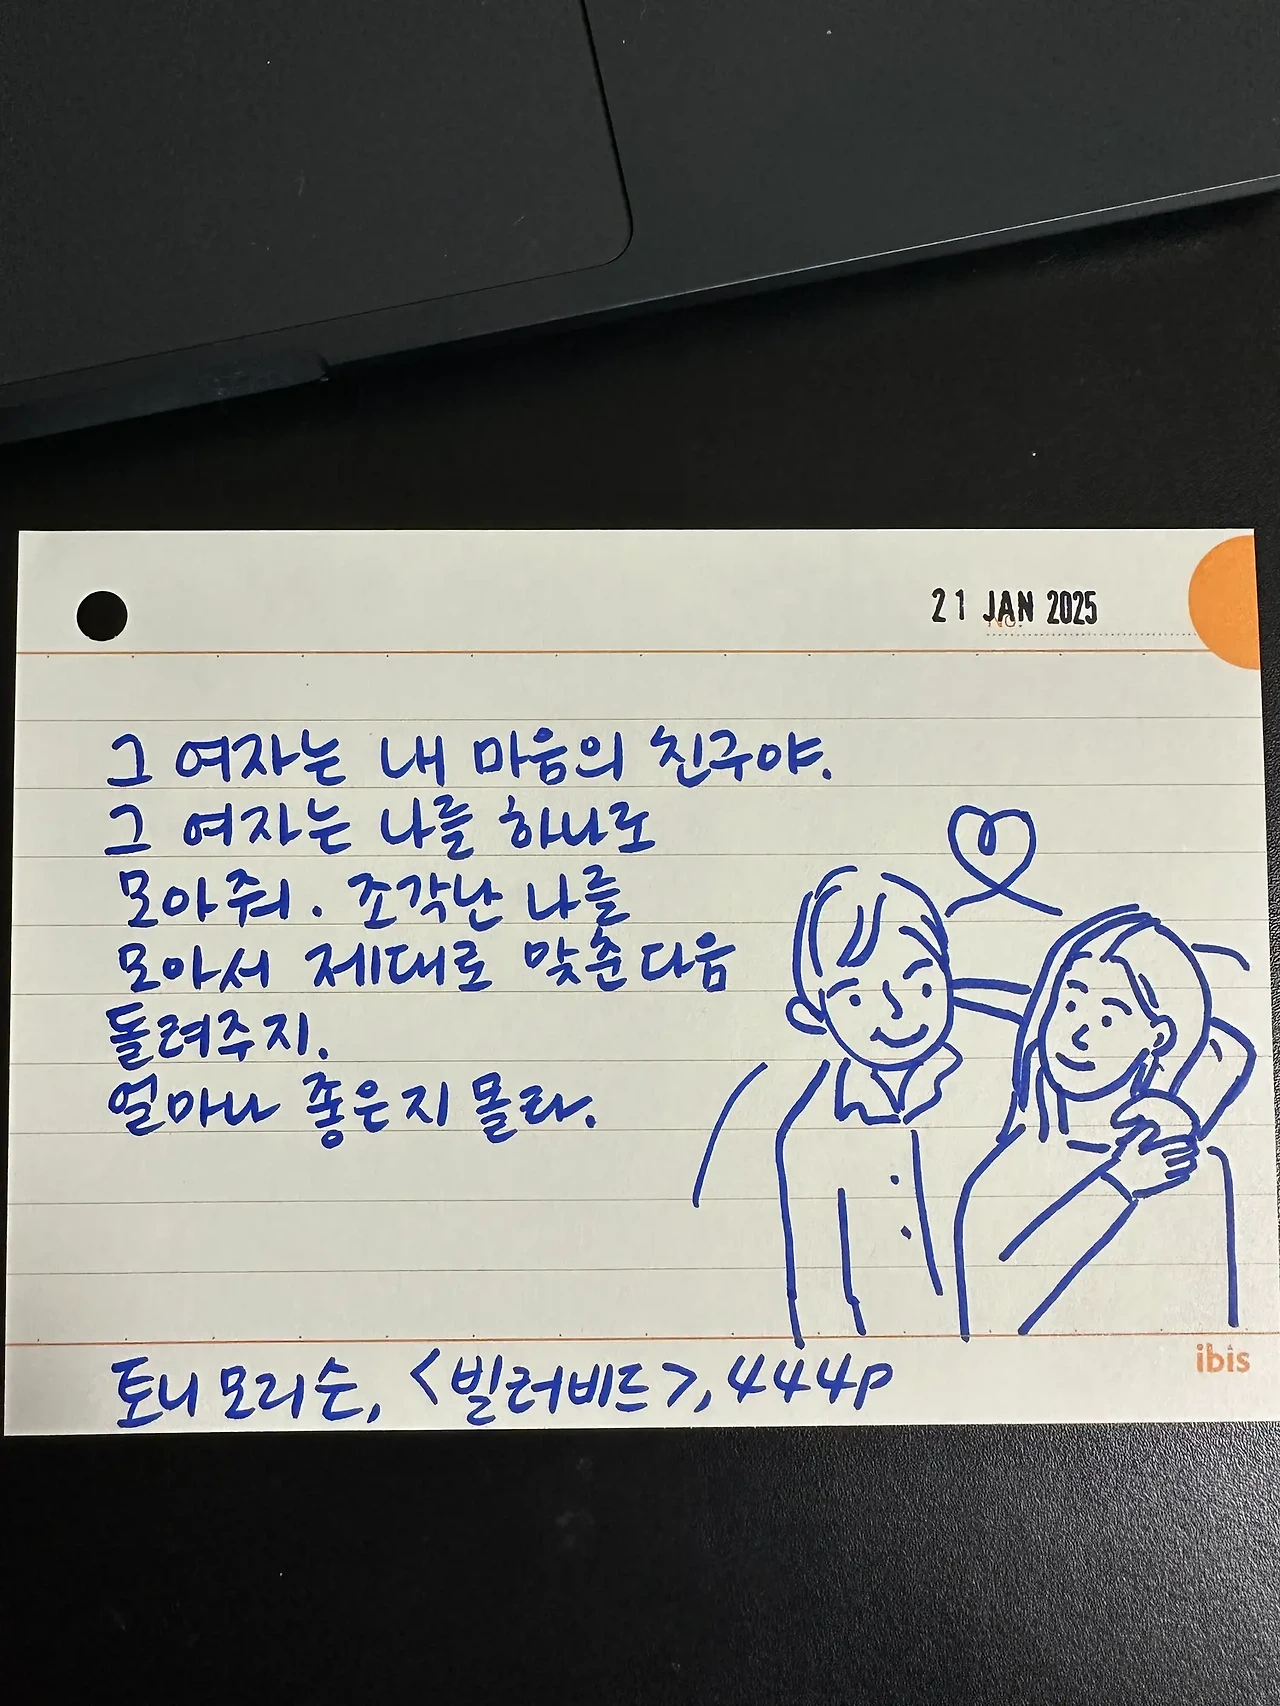 21 JAN 2025
No.
그 여자는 내 마음의 친구야.
그 여자는 나를 하나로
모아줘. 조각난 나를
모아서 제대로 맞춘다음
돌려주지.
얼마나 좋은지 몰라.
ibis
토니 모리슨, <빌러비드>, 444p